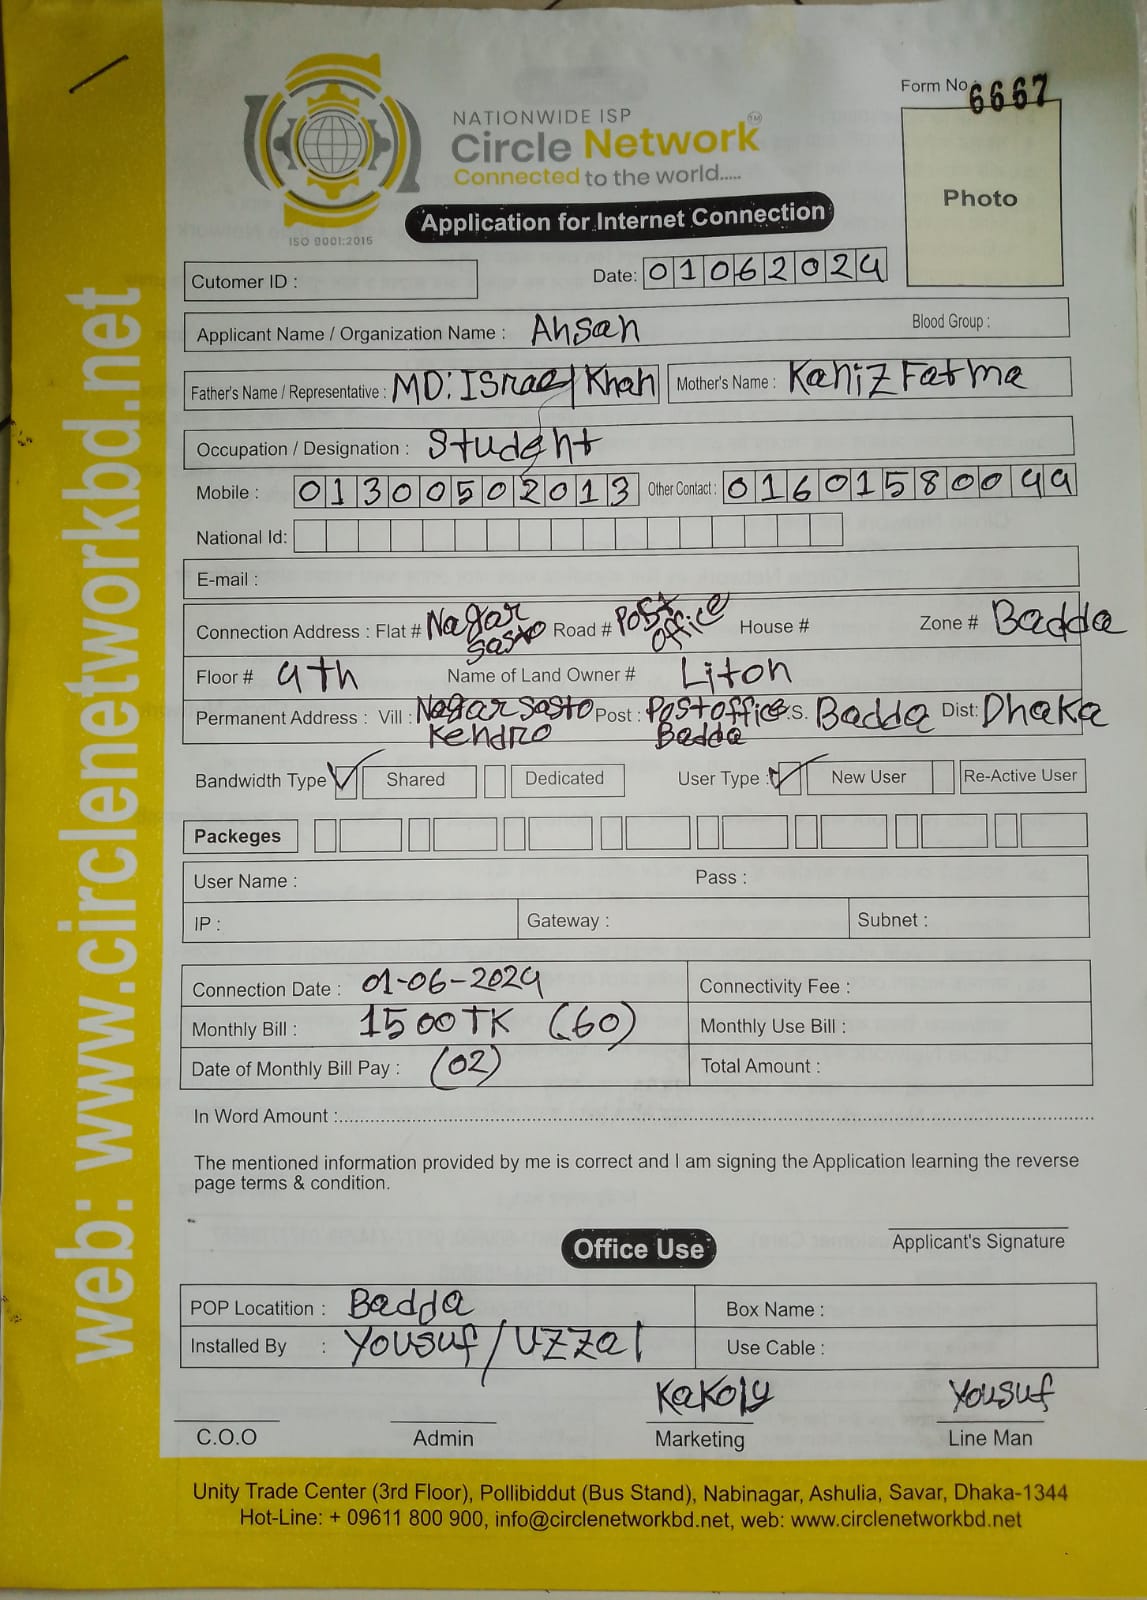 Form No 6667
NATIONWIDE ISP
Circle Network TM
Connected to the world.....
ISO 9001:2015
Application for Internet Connection
Photo
Cutomer ID :
Date: 01062024
Applicant Name / Organization Name : Ahsan
Blood Group :
Father's Name / Representative : MD: Israel Khan
Mother's Name : Kaniz Fatma
Occupation / Designation : Student
Mobile : 01300502013 Other Contact : 01601580044
National Id:
E-mail :
Connection Address : Flat # Nagar Sasto Road # Post office House # Zone # Badda
Floor # 4th Name of Land Owner # Liton
Permanent Address : Vill : Nagar Sasto Kendro Post : Post office Badda P.S. Badda Dist: Dhaka
Bandwidth Type Shared Dedicated User Type : New User Re-Active User
Packeges
User Name : Pass :
IP : Gateway : Subnet :
Connection Date : 01-06-2024 Connectivity Fee :
Monthly Bill : 1500TK (60) Monthly Use Bill :
Date of Monthly Bill Pay : (02) Total Amount :
In Word Amount :
The mentioned information provided by me is correct and I am signing the Application learning the reverse
page terms & condition.
Applicant's Signature
Office Use
POP Locatition : Badda Box Name :
Installed By : Yousuf/Uzzal Use Cable :
Kakoly Yousuf
C.O.O Admin Marketing Line Man
Unity Trade Center (3rd Floor), Pollibiddut (Bus Stand), Nabinagar, Ashulia, Savar, Dhaka-1344
Hot-Line: + 09611 800 900, info@circlenetworkbd.net, web: www.circlenetworkbd.net
web: www.circlenetworkbd.net